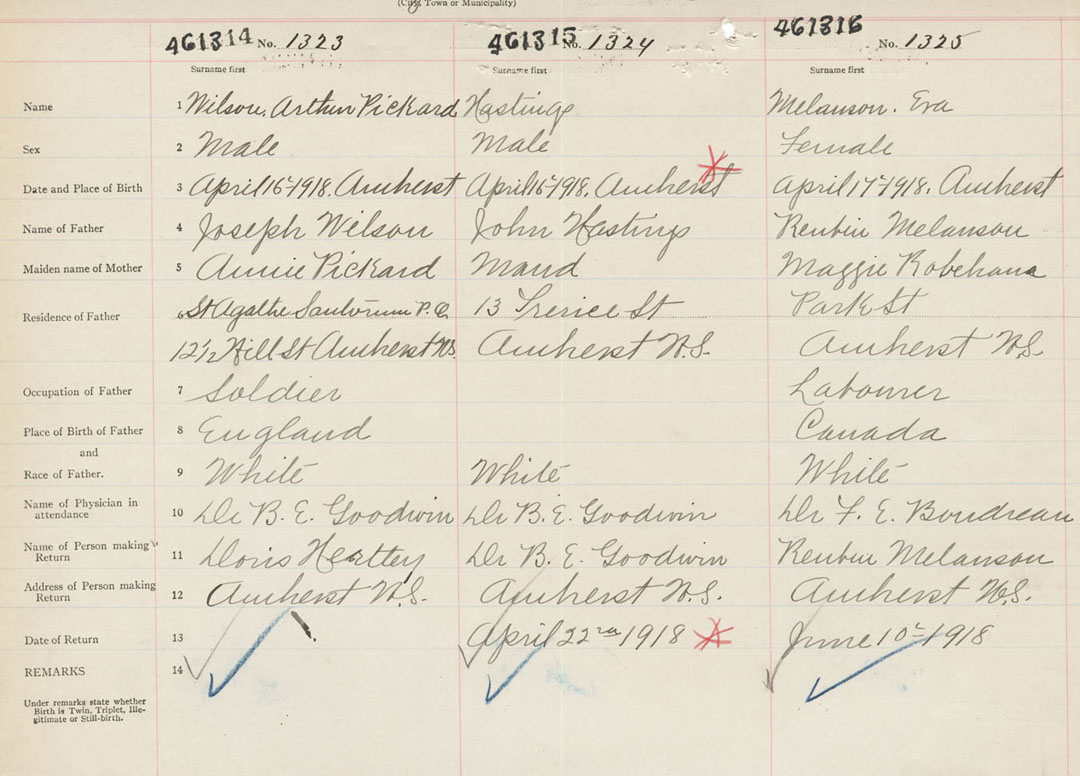 (City, Town or Municipality)
461314 No. 1323 461315 No. 1324 461316 No. 1325
Surname first Surname first Surname first
Name 1 Wilson, Arthur Pickard Hastings Melanson. Eva
Sex 2 Male Male Female
Date and Place of Birth 3 April 16-1918. Amherst April 16-1918. Amherst April 17-1918. Amherst
Name of Father 4 Joseph Wilson John Hastings Reubin Melanson
Maiden name of Mother 5 Annie Pickard Maud Maggie
Residence of Father 6 St Agathe P.Q. 13 St Park St
12½ Hill St Amherst N.S. Amherst N.S. Amherst N.S.
Occupation of Father 7 Soldier Labourer
Place of Birth of Father 8 England Canada
and
Race of Father. 9 White White White
Name of Physician in
attendance 10 Dr B. E. Goodwin Dr B. E. Goodwin Dr F. E. Boudreau
Name of Person making
Return 11 Doris Dr B. E. Goodwin Reubin Melanson
Address of Person making
Return 12 Amherst N.S. Amherst N.S. Amherst N.S.
Date of Return 13 April 22nd 1918 June 10th 1918
REMARKS 14
Under remarks state whether
Birth is Twin, Triplet, Ille-
gitimate or Still-birth.